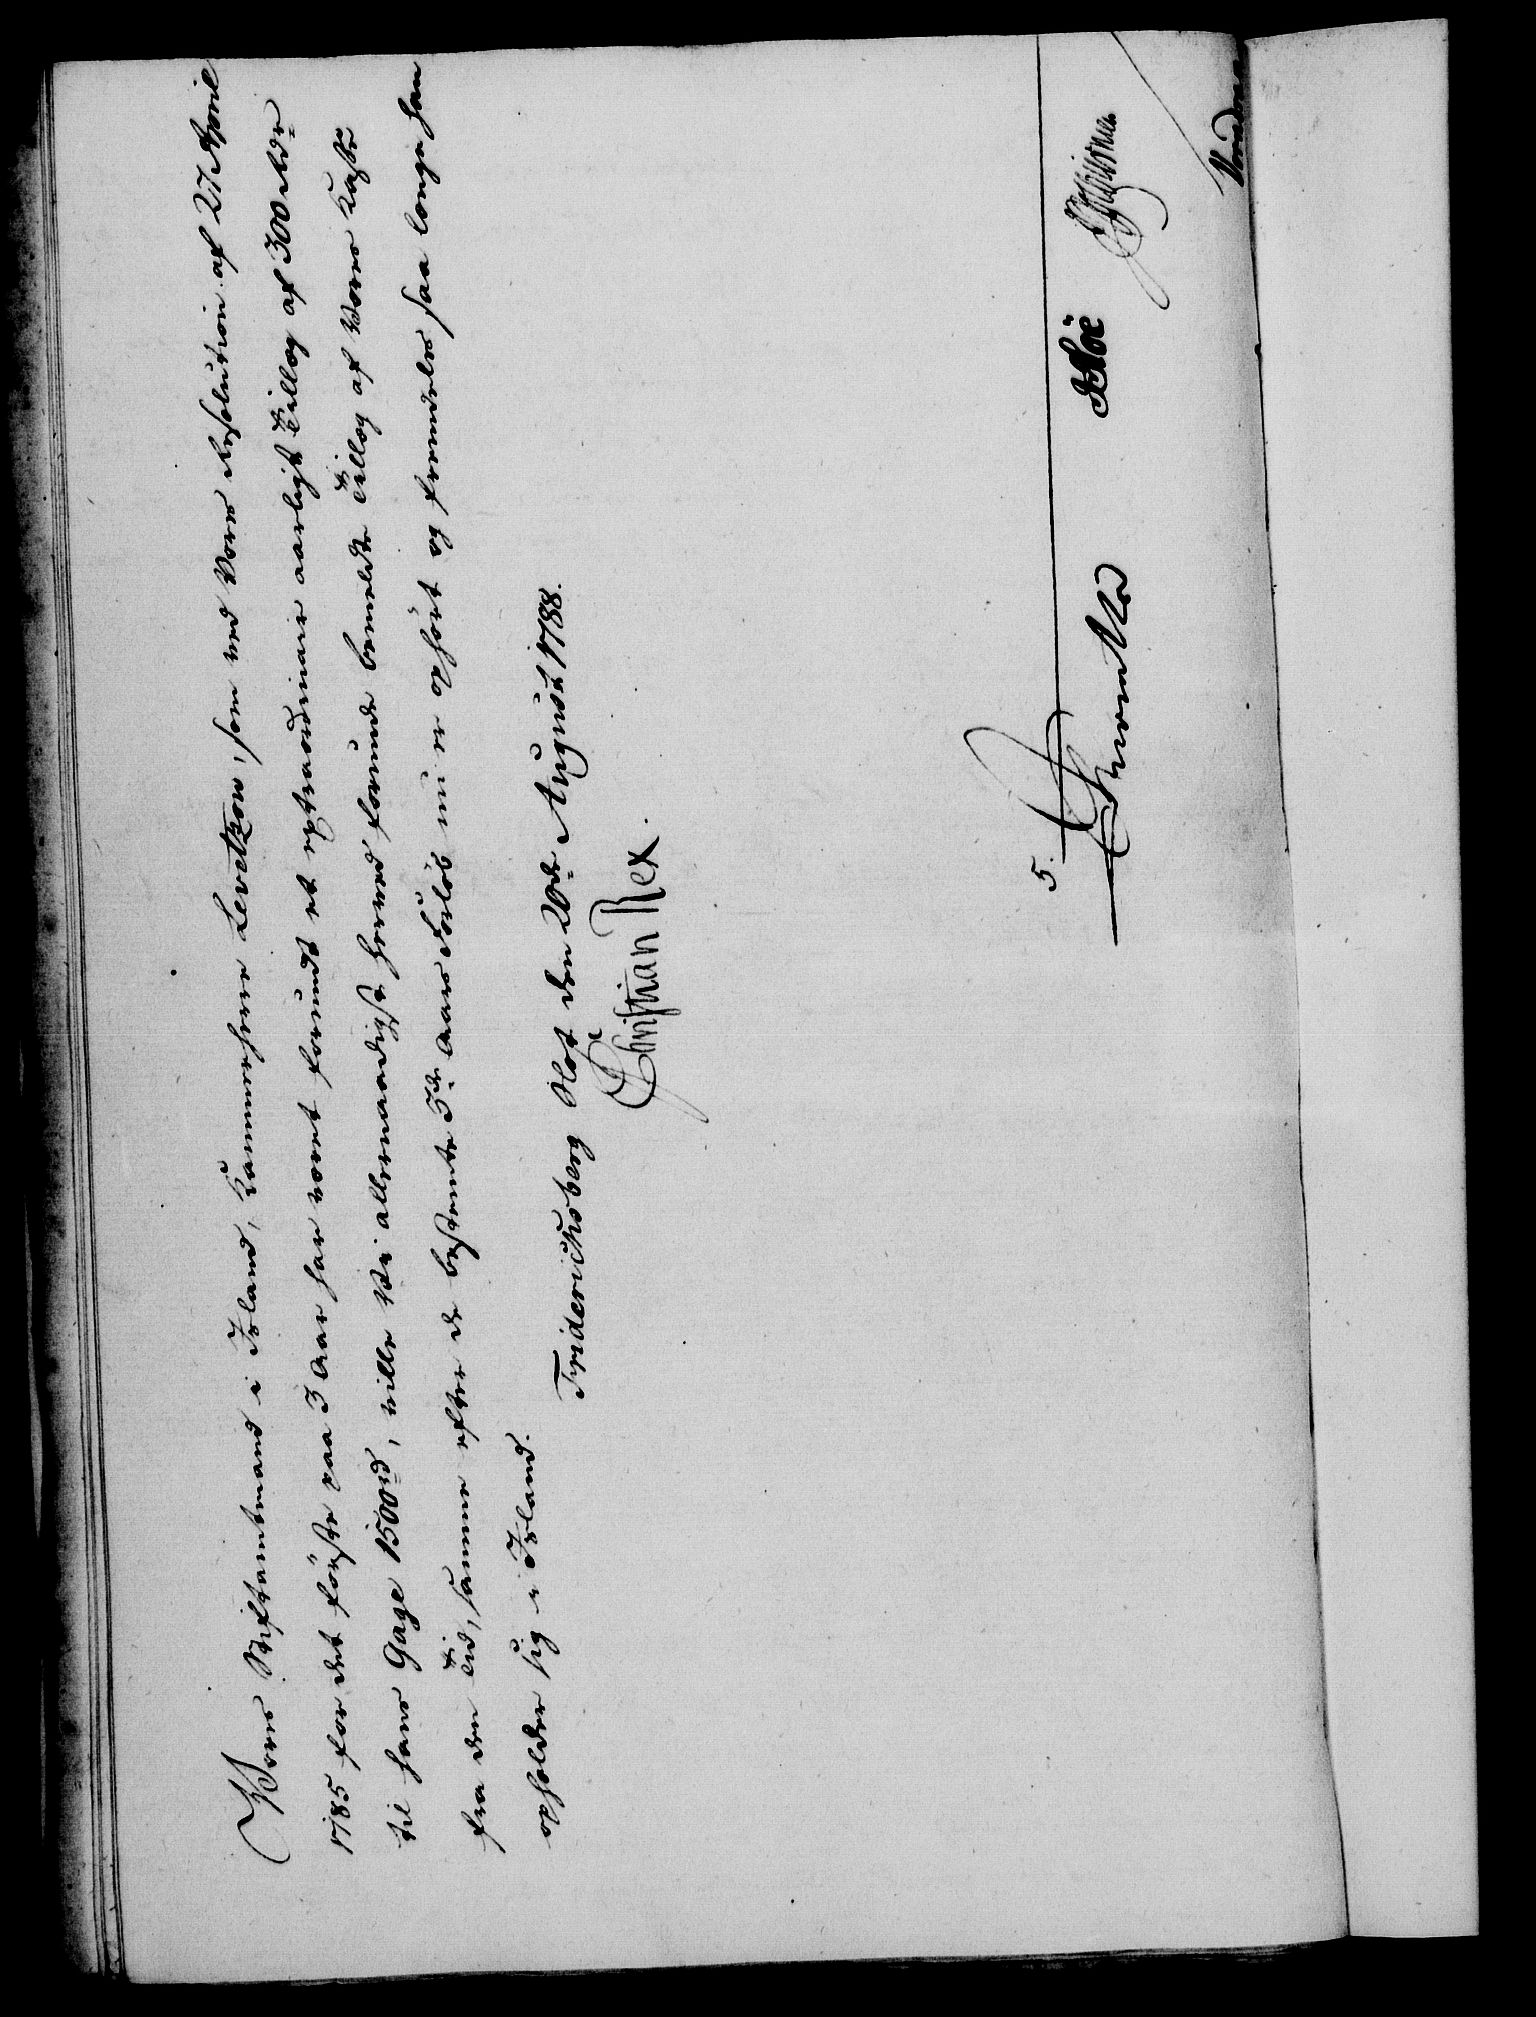 Vores Stiftamtmand i Island, Kammerherre Levetzow, som ved Vores Resolution af 27 April
1785 for det første paa 3 Aar har været forundt et extraordinair aarligt Tillæg af 300 Rdr
til hans Gage 1500 rd, ville Vi allernaadigst herved forunde bemeldte Tillæg af Vores Kasse
fra den Tid, samme efter de bestemte 3de Aars Forløb nu er ophørt og fremdeles saa længe han
opholder sig i Island.
Friderichsberg Slot den 20de August 1788.
Christian Rex.
5.